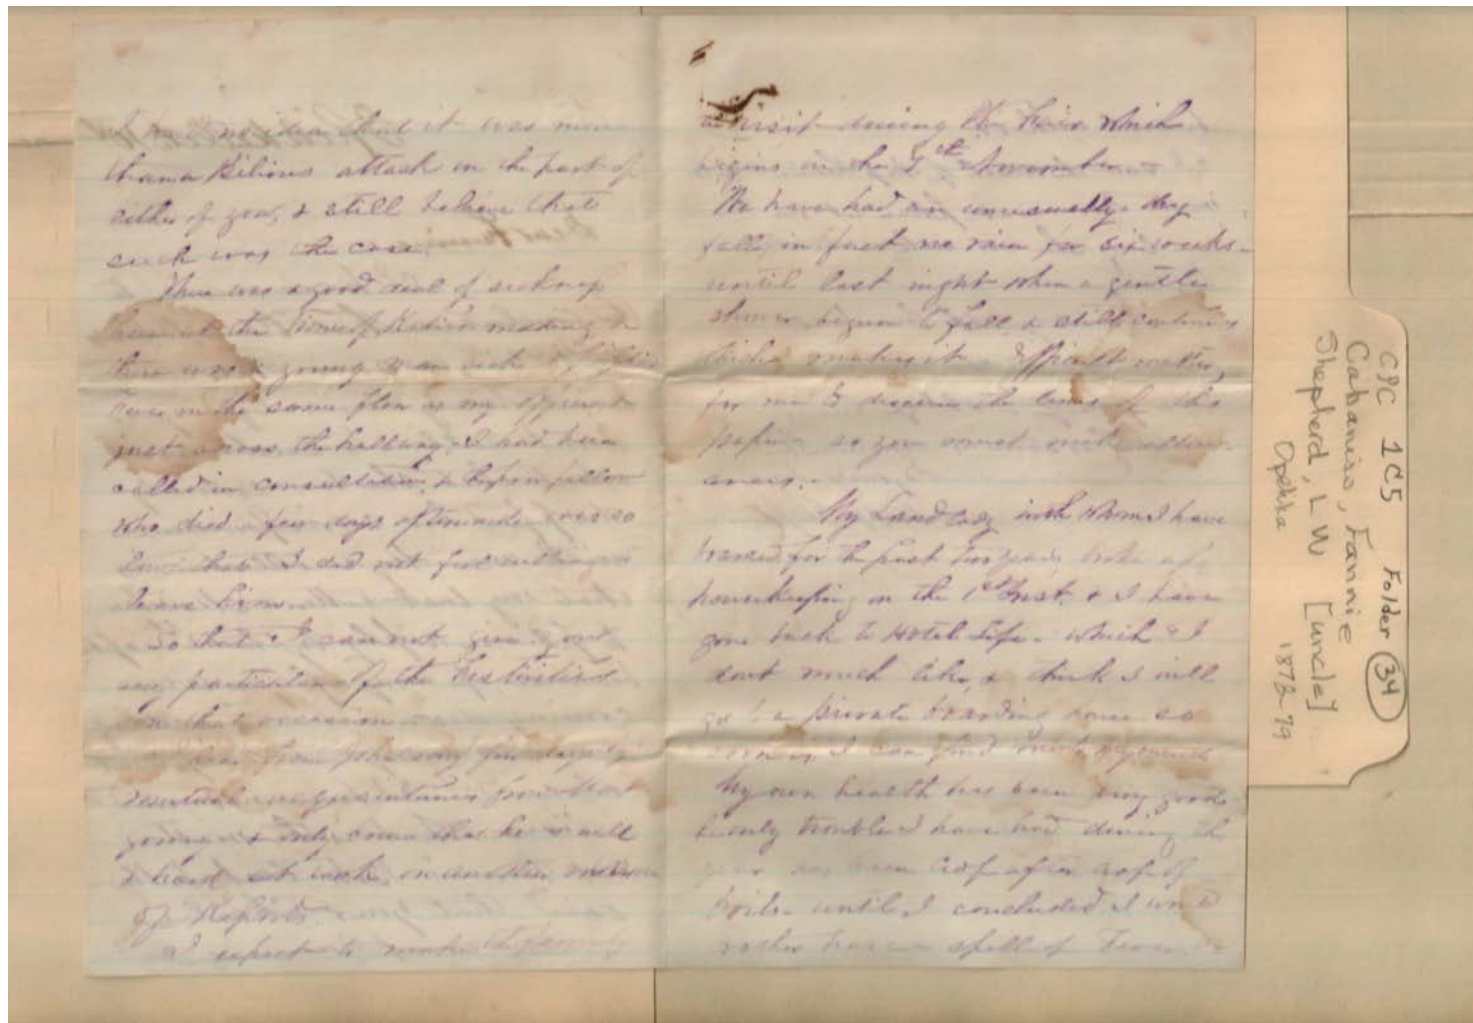 I had no idea that it was more
than a Bilious attack on the part of
either of you, & still believe that
such was the case.
There was a good deal of sickness
here at the time of
there was a young man sick
Fever on the same floor as my
just across the hallway. I had been
called in consultation, & the poor fellow
who died a few days afterwards was so
low that I did not feel willing to
leave him.
So that I can not give you
any particulars of the Festivities
on that occasion.
I hear from
acquaintances from Mont
gomery & only
& hard at work on another volume
of Reports.
I expect to make the family
a visit during the Fair which
begins on the November
We have had an unusually dry
fall, in fact no rain for six weeks
until last night when a gentle
shower began to fall & still continues
which makes it difficult
for me to discern the lines of this
paper so you must make allow-
ances.
My Land Lady with whom I have
boarded for the past two years broke up
housekeeping on the 1st Inst. & I have
gone back to Hotel Life. which I
dont much like, & think I will
go to a private boarding house so
soon as I can find
My own health has been very good
the only trouble I have had during the
year has been crop after crop of
boils. until I concluded I would
rather have a spell of Fever
CPC 1C5 Folder 34
Cabaniss, Fannie
Shepherd, L W [uncle]
Opelika 1878-79